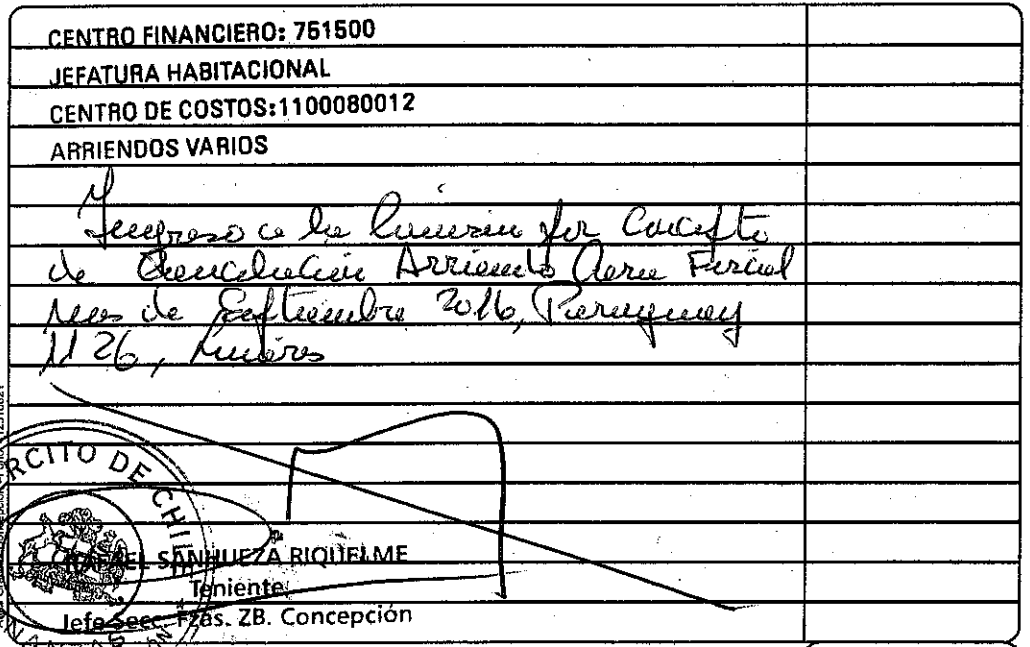 CENTRO FINANCIERO: 751500
JEFATURA HABITACIONAL
CENTRO DE COSTOS:1100080012
ARRIENDOS VARIOS
Ingreso a la por Concepto
de Arriendo Fiscal
Mes de Septiembre 2016, Paraguay
1126, Linares
RCITO DE CHILE
RAFAEL SANHUEZA RIQUELME
Teniente
Jefe Secc. Fzas. ZB. Concepción